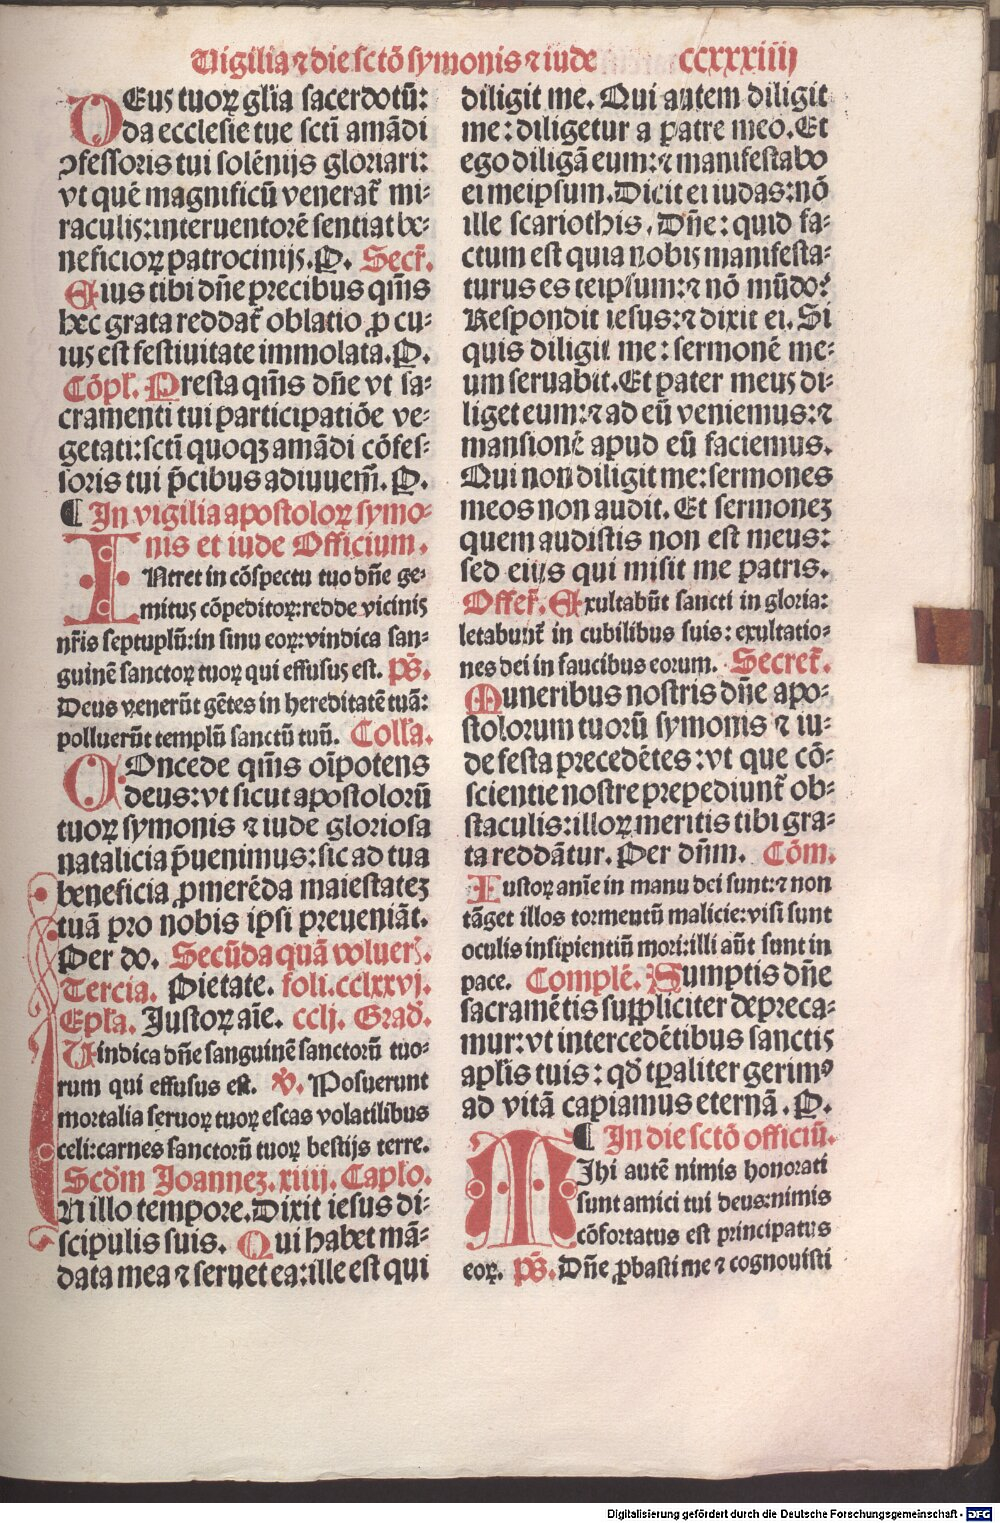 Uigilia ⁊ die sctō symonis ⁊ iude ccxxxiiij
DEus tuoꝝ glia sacerdotū:
da ecclesie tue scti amādi
ꝯfessoris tui solēnijs gloriari:
vt quē magnificū venerat᷑ mi-
raculis: interuentorē sentiat be-
neficioꝝ patrocinijs. P. Secr̄.
Eius tibi dn̄e precibus qm̄s
hec grata reddat᷑ oblatio ꝓ cu-
ius est festiuitate immolata. P.
Cōpl̄. Presta qm̄s dn̄e vt sa-
cramenti tui participatiōe ve-
getati: scti quoqꝫ amādi cōfes-
soris tui p̄cibus adiuuem̄. P.
¶ In vigilia apostoloꝝ symo-
nis et iude Officium.
INtret in cōspectu tuo dn̄e ge-
mitus cōpeditoꝝ: redde vicinis
nr̄is septuplū: in sinu eoꝝ: vindica san-
guinē sanctoꝝ tuoꝝ qui effusus est. ps̄.
Deus venerūt gētes in hereditatē tuā:
polluerūt templū sanctū tuū. Coll̄a.
COncede qm̄s oīpotens
deus: vt sicut apostolorū
tuoꝝ symonis ⁊ iude gloriosa
natalicia p̄uenimus: sic ad tua
beneficia ꝓmerēda maiestateꝫ
tuā pro nobis ipsi preueniāt.
Per do. Secūda quā voluer̄.
Tercia. Pietate. foli. cclxxvj.
Epl̄a. Justoꝝ aīe. cclj. Grad̄.
Uindica dn̄e sanguinē sanctorū tuo-
rum qui effusus est. ℣. Posuerunt
mortalia seruoꝝ tuoꝝ escas volatilibus
celi: carnes sanctorū tuoꝝ bestijs terre.
Scd̄m Joannez. xiiij. Capl̄o.
IN illo tempore. Dixit iesus di-
scipulis suis. Qui habet mā-
data mea ⁊ seruet ea: ille est qui
diligit me. Qui autem diligit
me: diligetur a patre meo. Et
ego diligā eum: ⁊ manifestabo
ei meipsum. Dicit ei iudas: nō
ille scariothis. Dn̄e: quid fa-
ctum est quia nobis manifesta-
turus es teipsum: ⁊ nō mūdo?
Respondit iesus: ⁊ dixit ei. Si
quis diligit me: sermonē me-
um seruabit. Et pater meus di-
liget eum: ⁊ ad eū veniemus: ⁊
mansionē apud eū faciemus.
Qui non diligit me: sermones
meos non audit. Et sermonez
quem audistis non est meus:
sed eius qui misit me patris.
Offer̄. Exultabūt sancti in gloria:
letabunt᷑ in cubilibus suis: exultatio-
nes dei in faucibus eorum. Secret̄.
Muneribus nostris dn̄e apo-
stolorum tuorū symonis ⁊ iu-
de festa precedētes: vt que cō-
scientie nostre prepediunt᷑ ob-
staculis: illoꝝ meritis tibi gra-
ta reddātur. Per dn̄m. Cōm.
Iustoꝝ anīe in manu dei sunt: ⁊ non
tāget illos tormentū malicie: visi sunt
oculis insipientiū mori: illi aūt sunt in
pace. Complē. Sumptis dn̄e
sacramētis suppliciter depreca-
mur: vt intercedētibus sanctis
apl̄is tuis: qd̄ tꝑaliter gerimꝰ
ad vitā capiamus eternā. P.
¶ In die sctō officiū.
MIhi autē nimis honorati
sunt amici tui deus: nimis
cōfortatus est principatus
eoꝝ. ps̄. Dn̄e ꝓbasti me ⁊ cognouisti
Digitalisierung gefördert durch die Deutsche Forschungsgemeinschaft - DFG